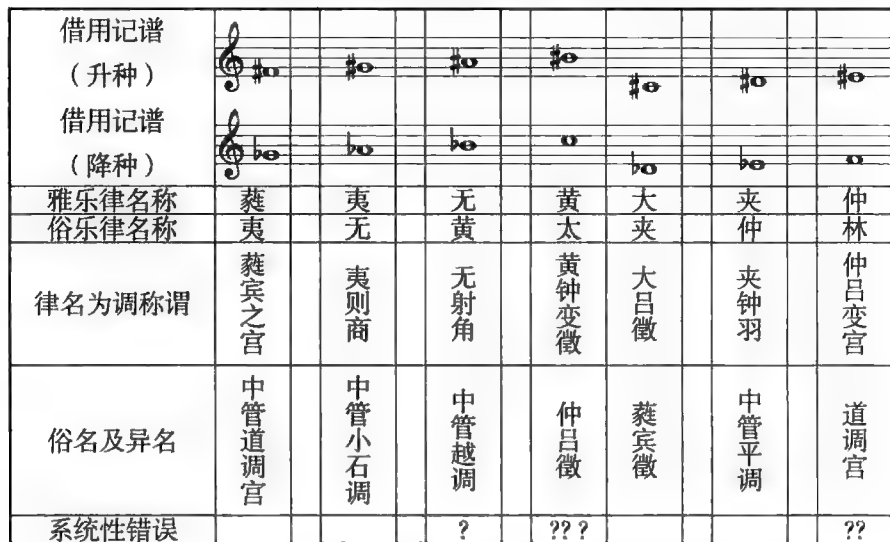 借用记谱
（升种）
借用记谱
（降种）
雅乐律名称 蕤 夷 无 黄 大 夹 仲
俗乐律名称 夷 无 黄 太 夹 仲 林
律名为调称谓 蕤宾之宫 夷则商 无射角 黄钟变徵 大吕徵 夹钟羽 仲吕变宫
俗名及异名 中管道调宫 中管小石调 中管越调 仲吕徵 蕤宾徵 中管平调 道调宫
系统性错误 ? ??? ??